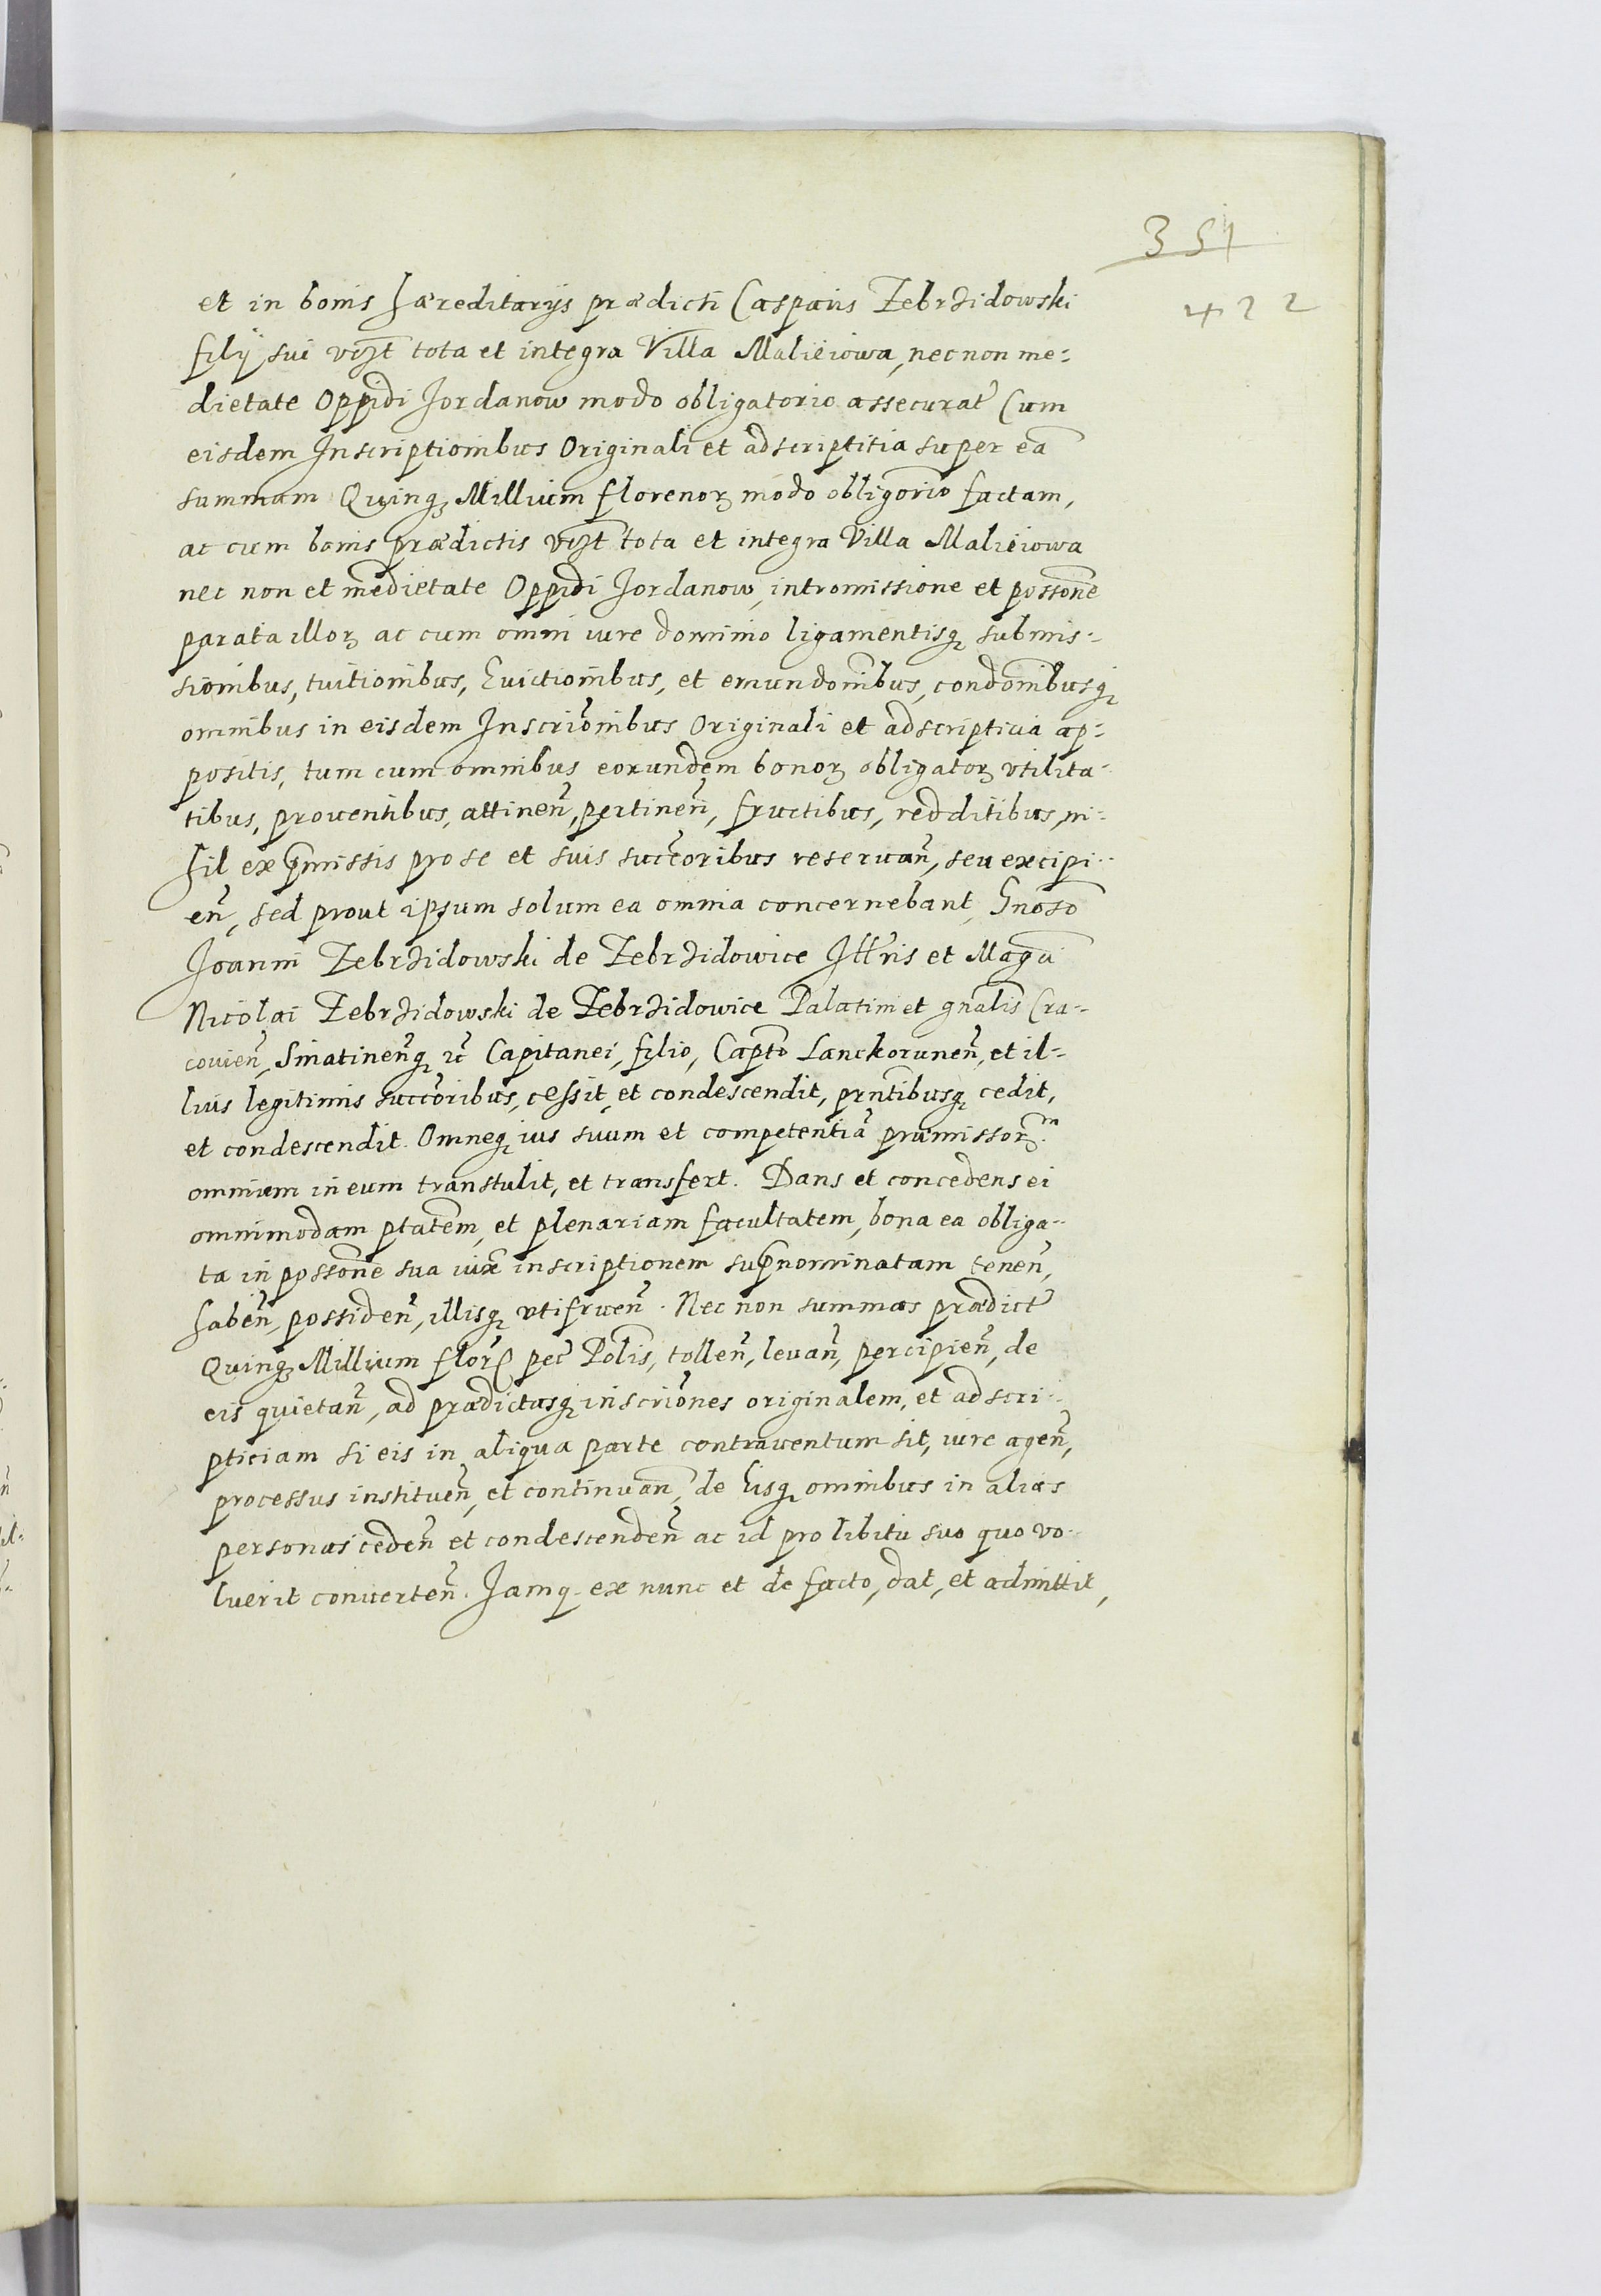 351
422
et in bonis hæreditarijs prædicti Casparis Zebrzidowski
filij sui vizt tota et integra Villa Malieiowa, necnon me-
dietate Oppidi Jordanow modo obligatorio assecurat̃ Cum
eisdem Inscriptionibus Originali et adscriptitia super eã
summam Quinq3 Millium florenoꝝ modo obligorio factam,
ac cum bonis prædictis vizt tota et integra Villa Malieiowa
nec non et medietate Oppidi Jordanow, intromissione et possone
parata illoꝝ ac cum omni iure dominio ligamentisq3 submis-
sionibus, tuitionibus, Euictionibus, et emundonibus, condonibusq3
omnibus in eisdem Inscrionibus Originali et adscripticia ap-
positis, tum cum omnibus eorundem bonoꝝ obligatoꝝ vtilita-
tibus, prouentibus, attineñ, pertineñ, fructibus, redditibus, ni-
hil ex p̃missis pro se et suis succoribus reseruañ, seu excipi-
eñ, sed prout ipsum solum ea omnia concernebant, Gnoso
Joanni Zebrzidowski de Zebrzidowice Illris et Magci
Nicolai Zebrzidowski de Zebrzidowice Palatini et gnalis Cra-
couieñ, Sniatineñq3 ꝛc̃ Capitanei, filio, Capto Lanckoruneñ, et il-
lius legitimis succoribus, cessit, et condescendit, prntibusq3 cedit,
et condescendit. Omneq3 ius suum et competentiã præmissoꝝ
omnium in eum transtulit, et transfert. Dans et concedens ei
omnimodam ptatem, et plenariam facultatem, bona ea obliga-
ta in possone sua iuxᵃ inscriptionem sup̃nominatam teneñ,
habeñ, possideñ, illisq3 vtifrueñ. Nec non summas prædict̃
Quinq3 Millium floꝝ pec̃ Polis, tolleñ, leuañ, percipieñ, de
eis quietañ, ad prædictasq3 inscriones originalem, et adscri-
pticiam si eis in aliqua parte contrauentum sit, iure ageñ,
processus institueñ, et continuañ, de Eisq3 omnibus in alias
personas cedeñ et condescendeñ ac id pro libitu suo quo vo-
luerit conuerteñ. Jamq3 ex nunc et de facto, dat, et admittit,